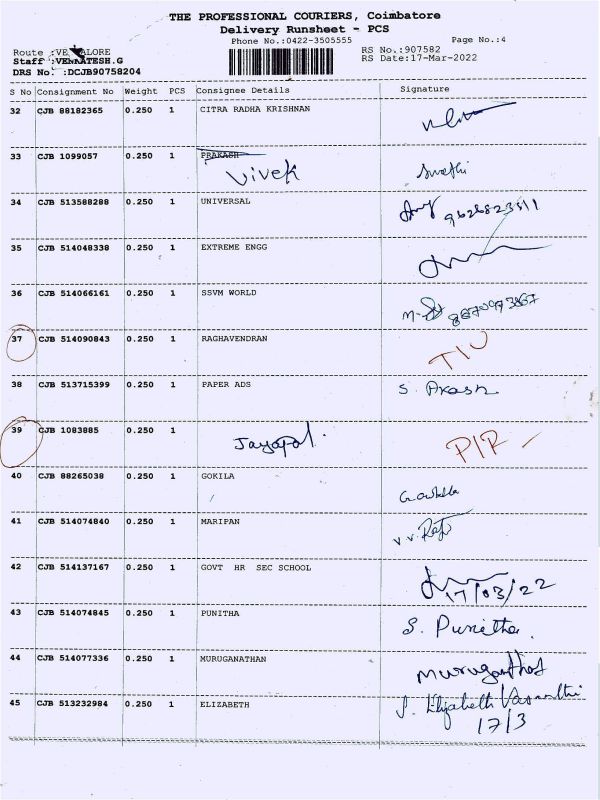 THE PROFESSIONAL COURIERS, Coimbatore
Delivery Runsheet - PCS
Phone No.:0422-3505555 Page No.:4
Route :VE ALORE RS No.:907582
Staff :VENKATESH.G RS Date:17-Mar-2022
DRS No. :DCJB90758204
S No Consignment No Weight PCS Consignee Details Signature
32 CJB 88182365 0.250 1 CITRA RADHA KRISHNAN
33 CJB 1099057 0.250 1 PRAKASH
Vivek Swathi
34 CJB 513588288 0.250 1 UNIVERSAL
35 CJB 514048338 0.250 1 EXTREME ENGG
36 CJB 514066161 0.250 1 SSVM WORLD
37 CJB 514090843 0.250 1 RAGHAVENDRAN
38 CJB 513715399 0.250 1 PAPER ADS S. Akash
39 CJB 1083885 0.250 1 Jayapal.
40 CJB 88265038 0.250 1 GOKILA
41 CJB 514074840 0.250 1 MARIPAN
42 CJB 514137167 0.250 1 GOVT HR SEC SCHOOL 17/03/22
43 CJB 514074845 0.250 1 PUNITHA S. Punitha.
44 CJB 514077336 0.250 1 MURUGANATHAN
45 CJB 513232984 0.250 1 ELIZABETH J. Elizabeth Vasanthi
17/3